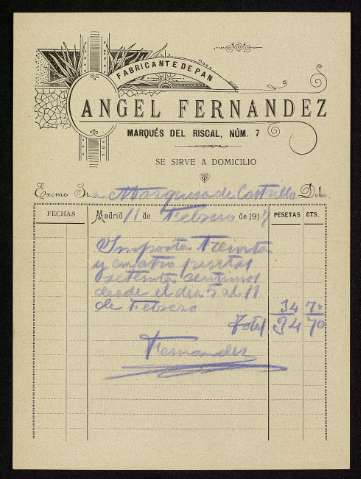 FABRICANTE DE PAN
ANGEL FERNANDEZ
MARQUÉS DEL RISCAL, NÚM. 7
SE SIRVE A DOMICILIO
Excmo Sra Marquesa de Castrillo Deb.
FECHAS Madrid 11 de Febrero de 191 PESETAS CTS.
Importa Treinta
y cuatro pesetas
setenta centimos
desde el dia 5 al 11
de Febrero 34 70
Total 34 70
Fernandez